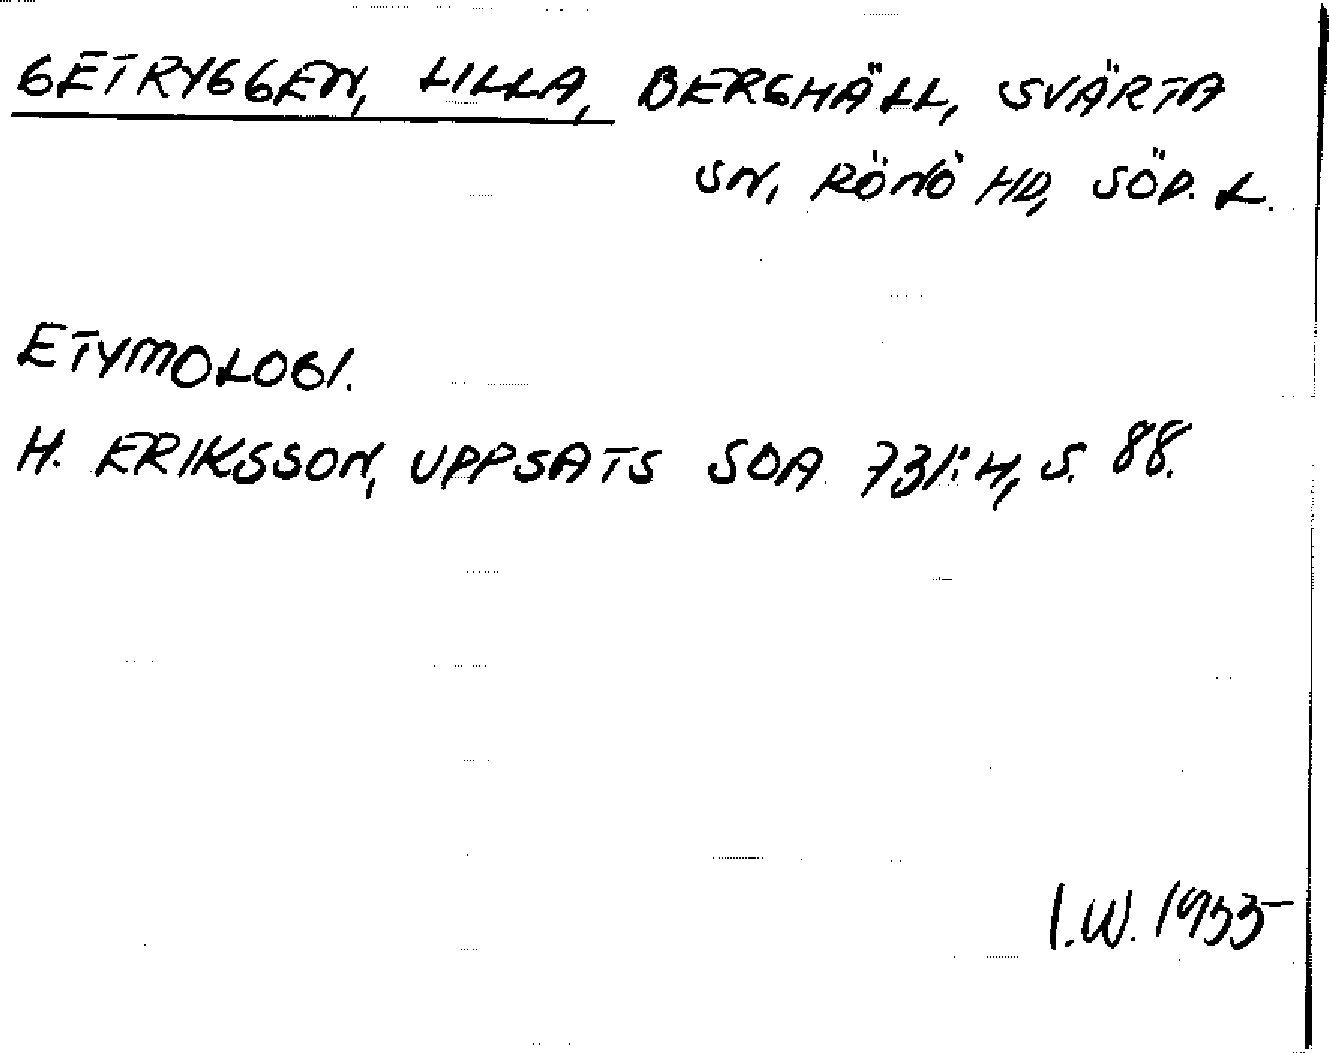 GETRYGGEN, LILLA, BERGHÄLL, SVÄRTA
SN, RÖNÖ HD, SÖD. L.
ETYMOLOGI.
H. ERIKSSON, UPPSATS SOA 731:4, S. 88.
I.W. 1955